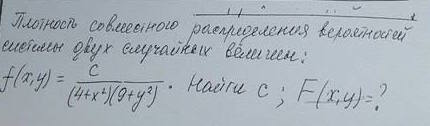 Плотность совместного распределения вероятностей
системы двух случайных величин:
f(x,y) = C / ((4+x²)(9+y²)) . Найти c ; F(x,y)=?